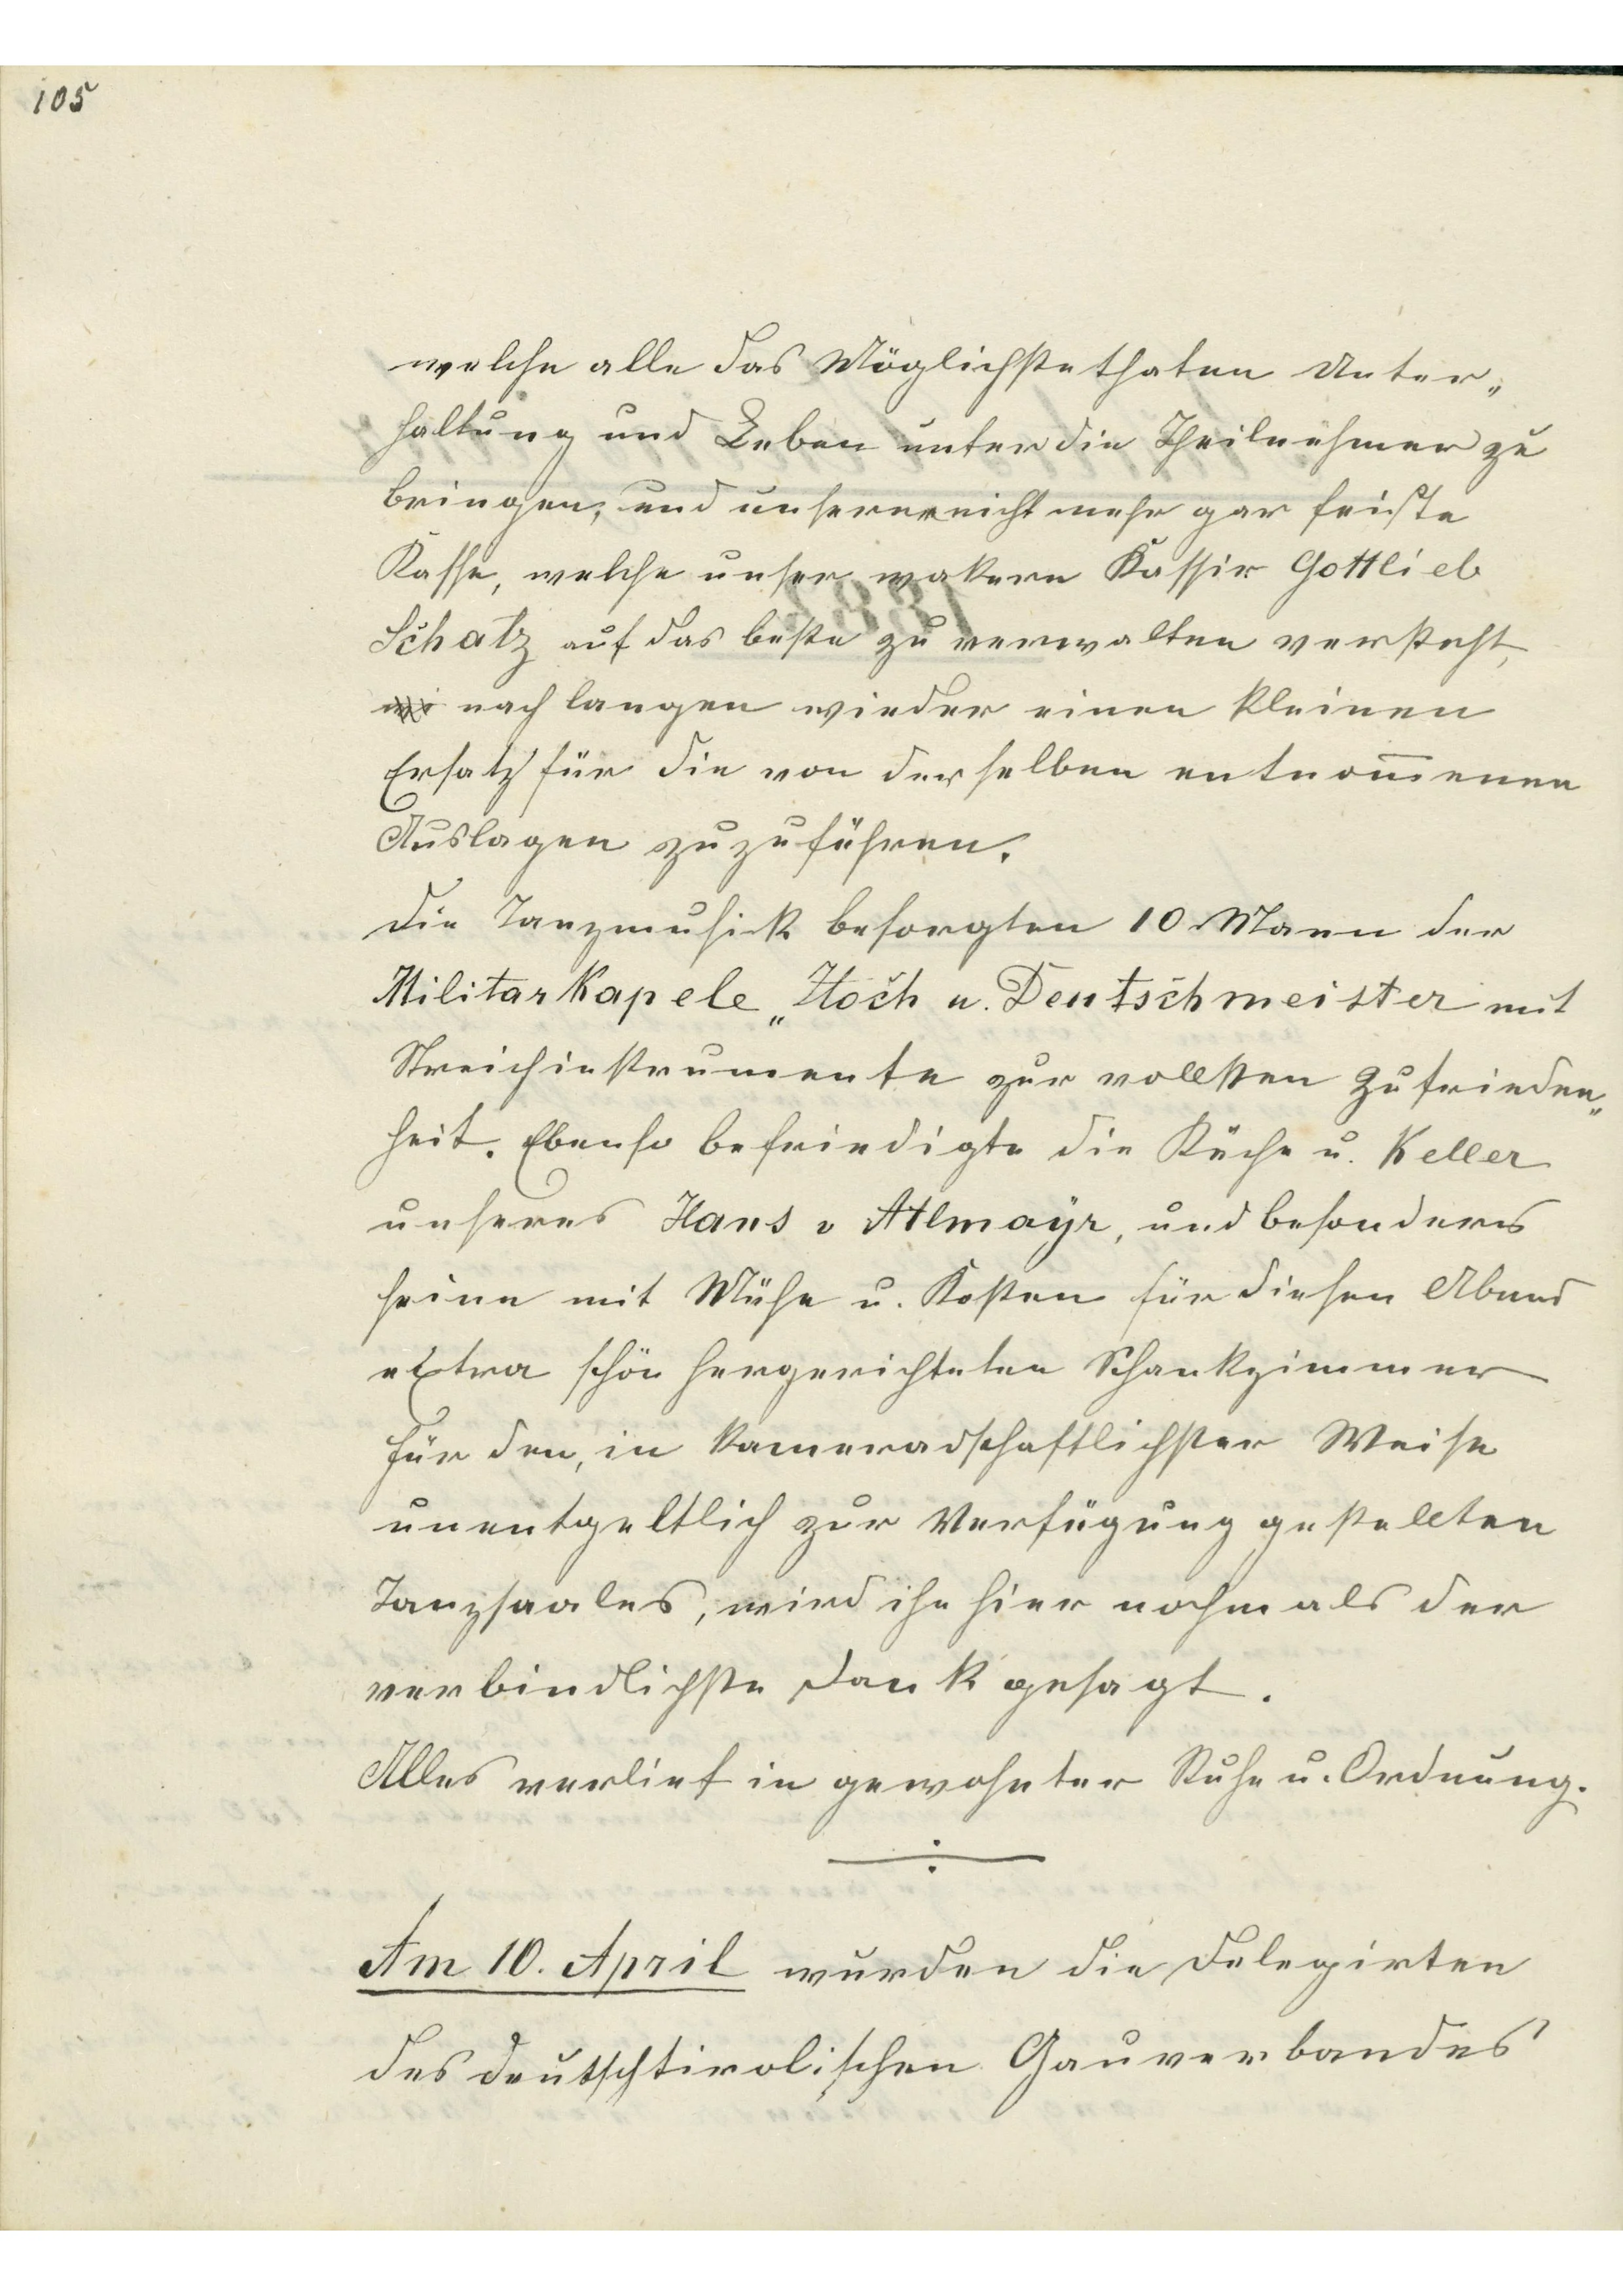 105
welche alle das Möglichste thaten Unter„
haltung und Leben unter die Theilnehmer zu
bringen, und unserer nicht mehr gar feiste
Kasse, welche unser wakere Kassir Gottlieb
Schatz auf das beste zu verwalten versteht,
nach langen wieder einen kleinen
Ersatz für die von derselben entnom̅enen
Auslagen zuzuführen.
Die Tanzmusik besorgten 10 Mann der
Militarkapele „Hoch u. Deutschmeister mit
Streichinstrumente zur vollsten Zufrieden„
heit. Ebenso befriedigte die Küche u. Keller
unseres Hans v Atlmayr, und besonders
seine mit Mühe u. Kosten für diesen Abend
extra schön hergerichteten Schankzimmer
für den, in kameradschaftlichster Weise
unentgeltlich zur Verfügung gestellten
Tanzsaales, wird ihn hier nochmals der
verbindlichste Dank gesagt.
Alles verlief in gewohnter Ruhe u. Ordnung.
Am 10. April wurden die Delegirten
des deutschtirolischen Gauverbandes